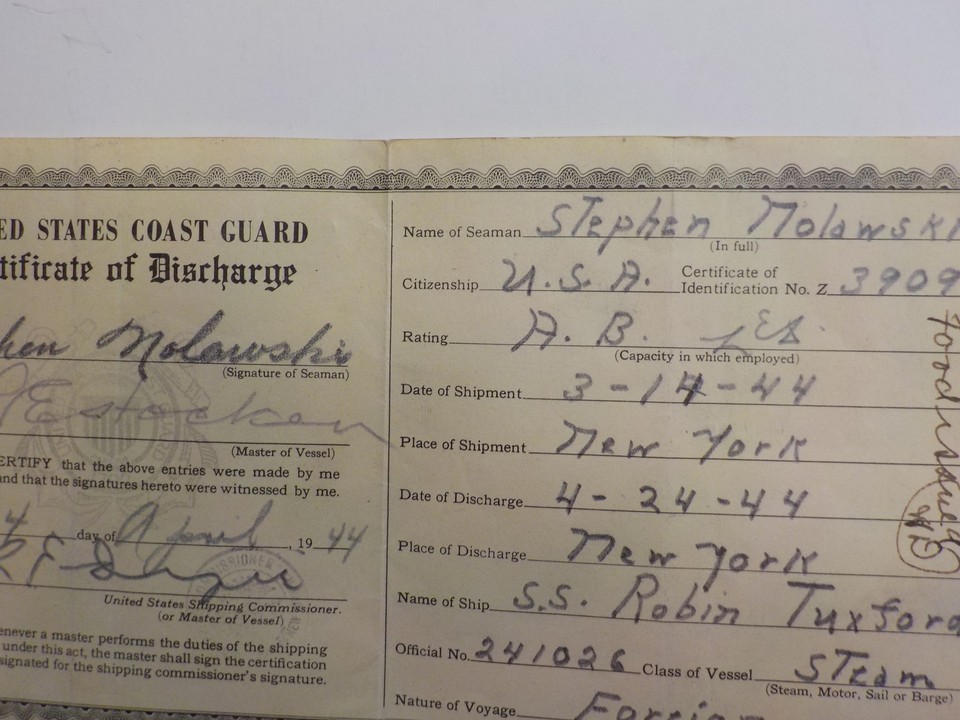 ED STATES COAST GUARD
tificate of Discharge
hen Molawski
(Signature of Seaman)
(Master of Vessel)
ERTIFY that the above entries were made by me
and that the signatures hereto were witnessed by me.
4 day of April, 19 44
United States Shipping Commissioner.
(or Master of Vessel)
enever a master performs the duties of the shipping
under this act, the master shall sign the certification
signated for the shipping commissioner's signature.
Name of Seaman Stephen Molawski
(In full)
Citizenship U.S.A. Certificate of
Identification No. Z 3909
Rating A. B.
(Capacity in which employed)
Date of Shipment 3-14-44
Place of Shipment New York
Date of Discharge 4-24-44
Place of Discharge New York
Name of Ship S.S. Robin Tuxford
Official No. 241026 Class of Vessel STeam
(Steam, Motor, Sail or Barge)
Nature of Voyage Foreign
food issued